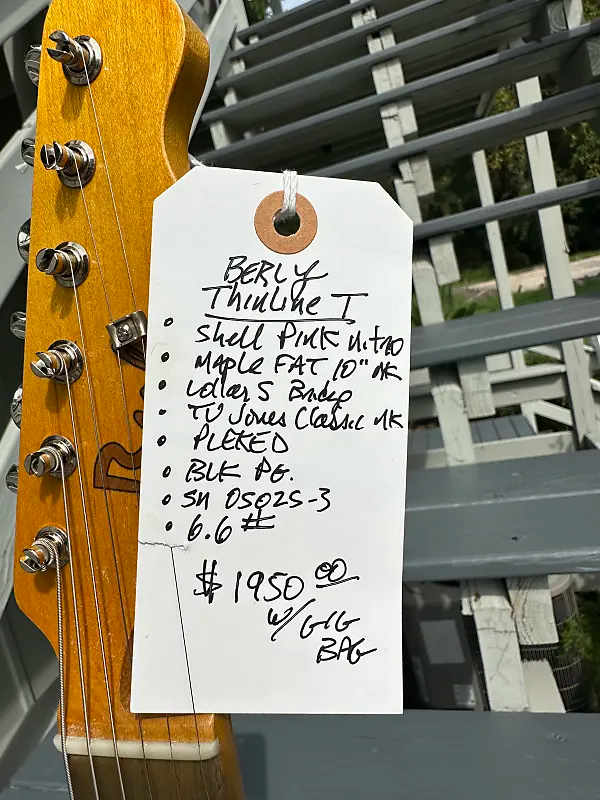 BERLY
Thinline T
• Shell Pink nitro
• MAPLE FAT 10" NK
• Lollar S Bridge
• TV Jones Classic NK
• PLEKED
• BLK PG.
• SN 05025-3
• 6.6 #
$ 1950 00
w/ GIG
BAG